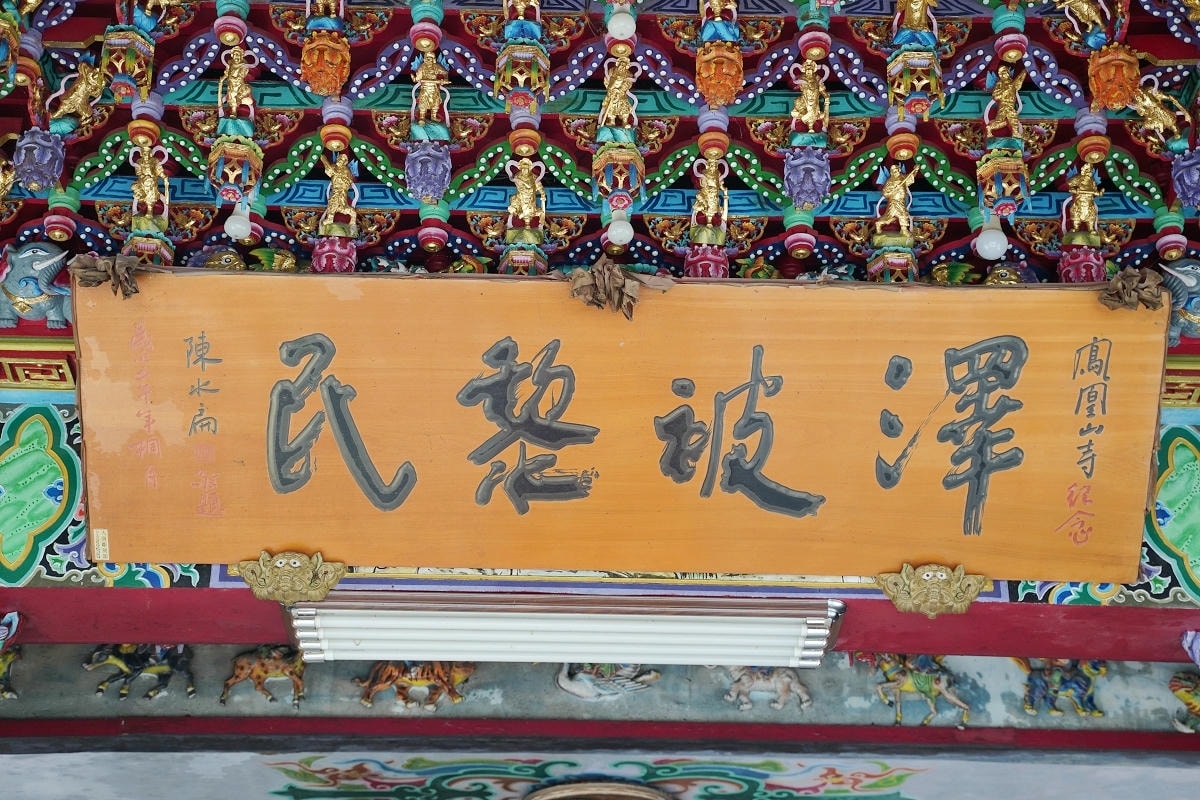 鳳凰山寺紀念
澤被黎民
陳水扁